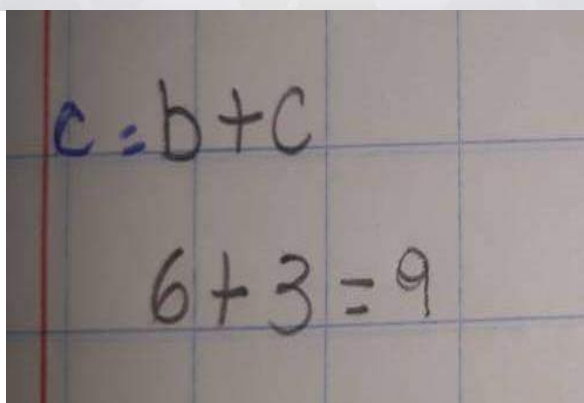 c = b + c
6 + 3 = 9